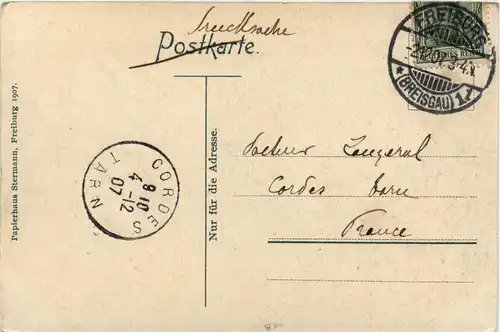 Drucksache
Postkarte.
FREIBURG
(BREISGAU)
Papierhaus Stermann, Freiburg 1907.
Nur für die Adresse.
CORDES
9 10
4 -12
07
TARN
Docteur
Cordes Tarn
France